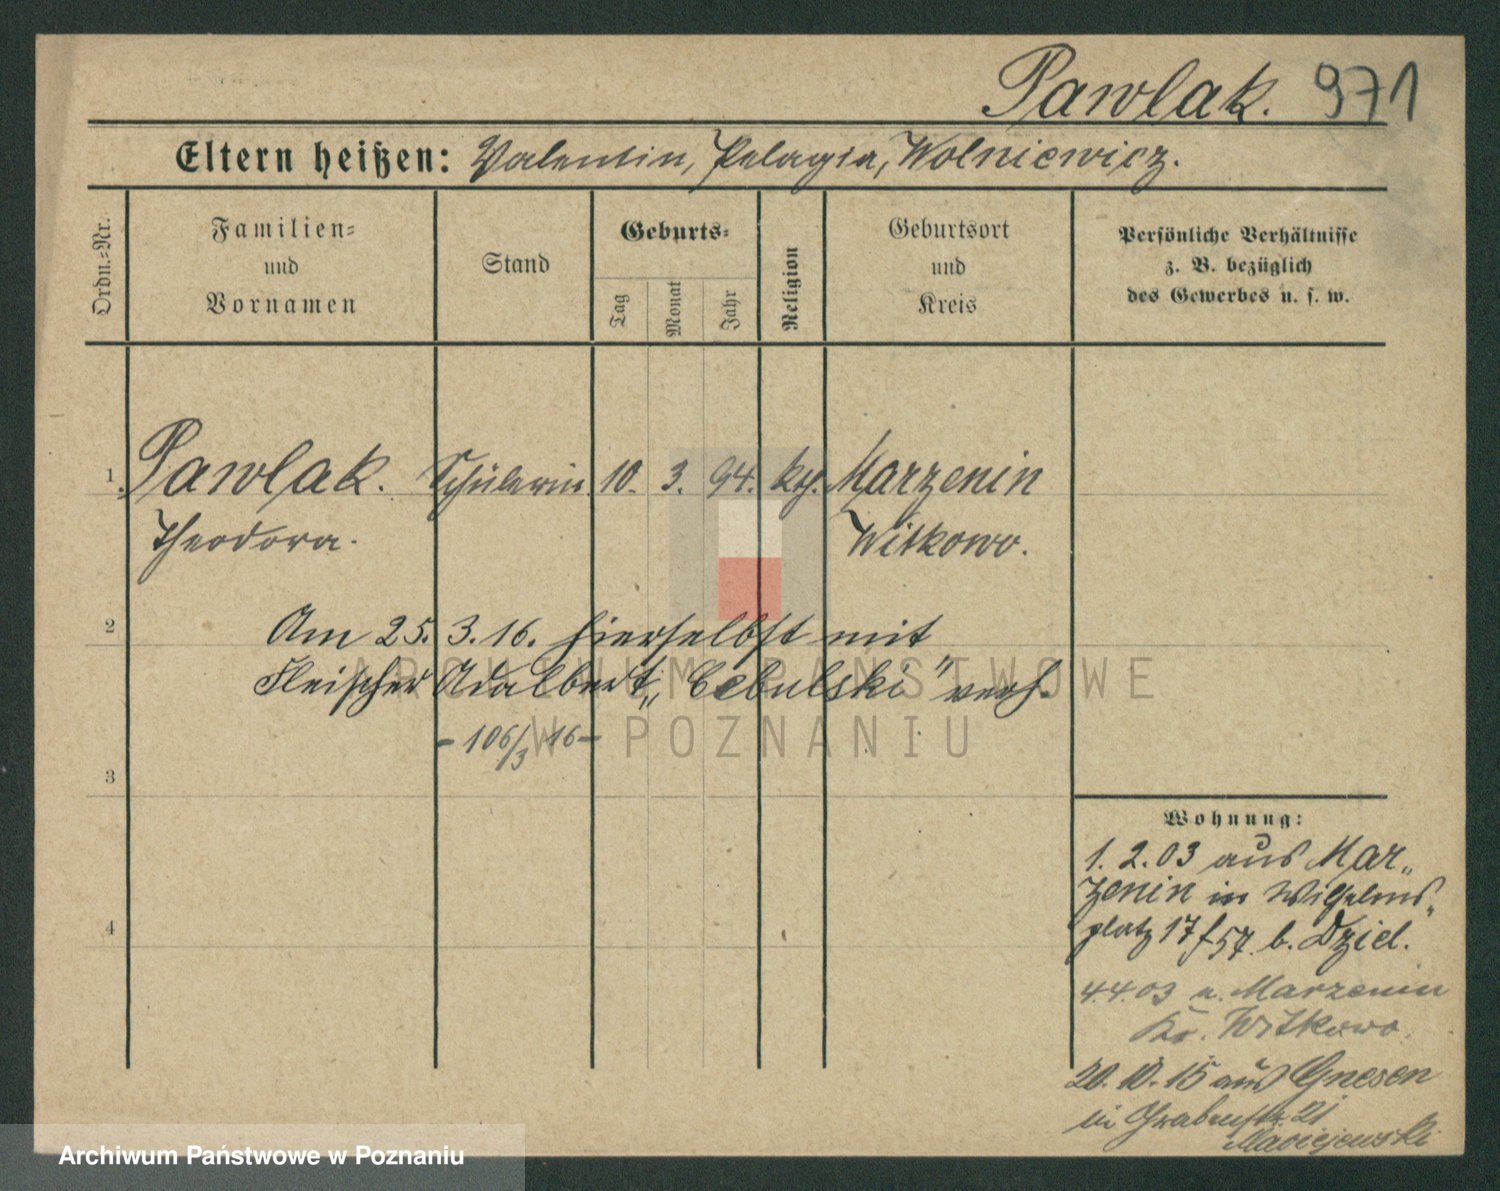 Pawlak. 971
Eltern heißen: Valentin, Pelagia, Wolniewicz.
Ordn.-Nr.
Familien-
und
Vornamen
Stand
Geburts-
Tag
Monat
Jahr
Religion
Geburtsort
und
Kreis
Persönliche Verhältnisse
z. B. bezüglich
des Gewerbes u. s. w.
1. Pawlak. Schülerin. 10. 3. 94. kth. Marzenin
Theodora. Witkowo.
2 Am 25. 3. 16. hierselbst mit
Fleischer Adalbert „Cebulski" verh.
- 106/3 16 -
3
4
Wohnung:
1. 2. 03 aus Mar„
zenin in Wilhelms„
platz 17 f 57. b. Dziel.
4.4.03 n. Marzenin
Kr. Witkowo.
20. 10. 15 aus Gnesen
in Grabenstr. 21
Maciejewski
ARCHIWUM PAŃSTWOWE
W POZNANIU
Archiwum Państwowe w Poznaniu